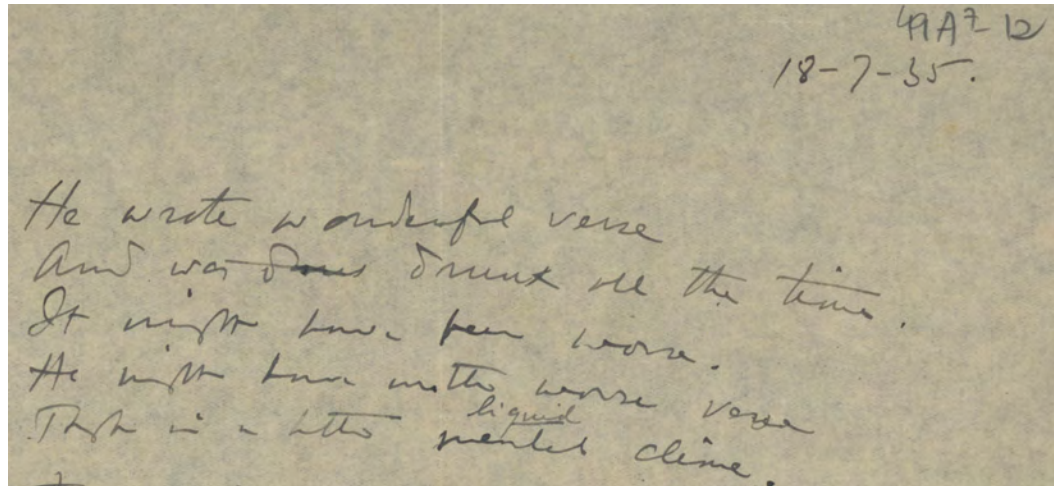 49A7-12
18-7-35.
He wrote wonderful verse
And was drunk all the time.
It might have been worse.
He might have written worse verse
in a better
liquid
mental clime.